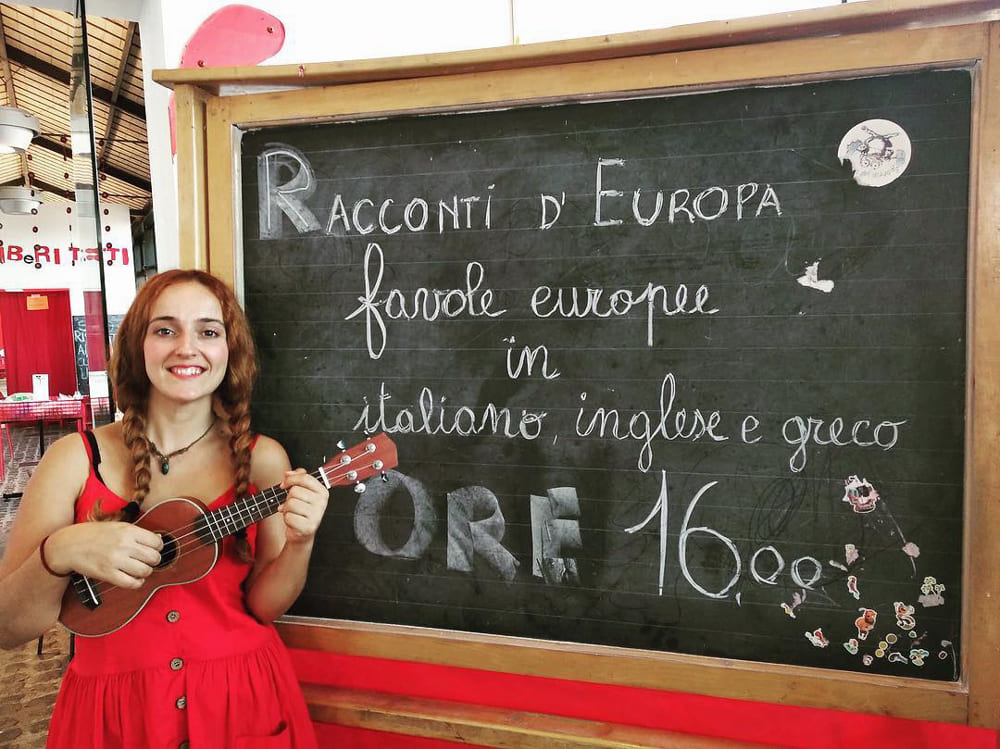 RACCONTI D'EUROPA
favole europee
in
italiano, inglese e greco
ORE 16,00